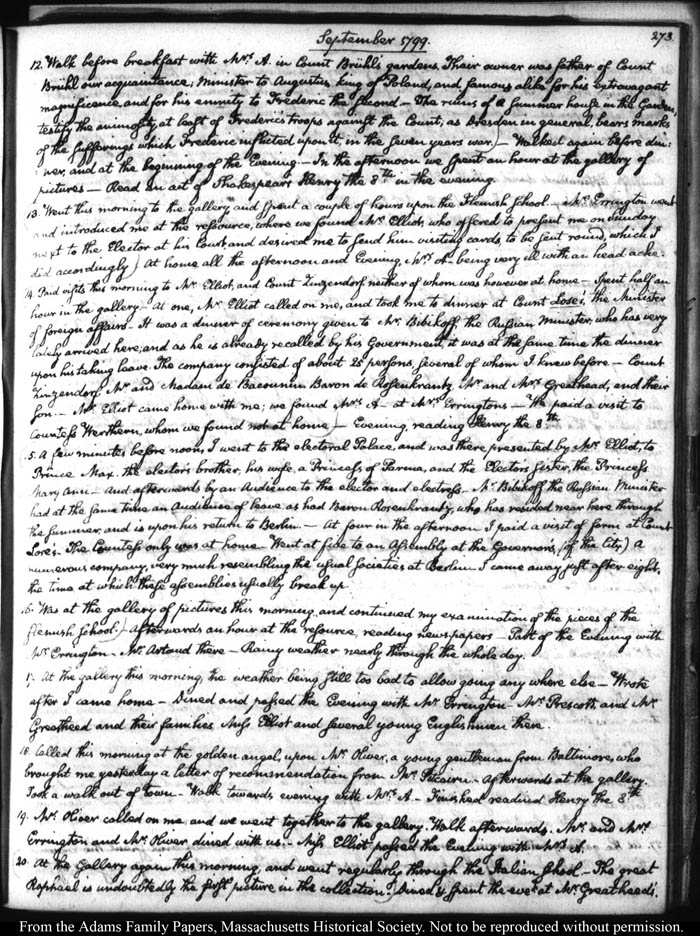 September 1799.
273
12. Walk before breakfast with Mrs. A. in Count Brühl's gardens. Their owner was father of Count
Brühl our acquaintance; Minister to Augustus king of Poland, and famous alike for his extravagant
magnificence, and for his enmity to Frederic the Second — The ruins of a summer house in the Garden,
testify the animosity, at least of Frederic's troops against the Count; as Dresden in general, bears marks
of the sufferings which Frederic inflicted upon it, in the seven years war. — Walked again before din-
ner, and at the beginning of the Evening — In the afternoon we spent an hour at the gallery of
pictures — Read an act of Shakespears Henry the 8th in the evening.
13. Went this morning to the gallery, and spent a couple of hours upon the Flemish School — Mr. Errington went
and introduced me at the ressource, where we found Mr. Elliot, who offered to present me on Sunday
next to the Elector at his Court and desired me to send him visiting cards, to be sent round, which I
did accordingly) At home all the afternoon and Evening, Mrs. A— being very ill with an head ache.
14. Paid visits this morning to Mr. Elliot, and Count Zinzendorf neither of whom was however at home — Spent half an
hour in the gallery — At one, Mr. Elliot called on me, and took me to dinner at Count Loss's, the Minister
of foreign affairs — It was a dinner of ceremony given to Mr. Bibikoff, the Russian Minister, who has very
lately arrived here; and as he is already recalled by his Government, it was at the same time the dinner
upon his taking leave. The company consisted of about 25 persons, several of whom I knew before — Count
Zinzendorf, Mr. and Madam de Bacounin Baron de Rosenkrantz, Mr. and Mrs. Greathead, and their
Son — Mr. Elliot came home with me; we found Mrs. A— at Mrs. Erringtons — We paid a visit to
Countess Werthern, whom we found not at home) — Evening, reading Henry the 8th
15. A few minutes before noon, I went to the electoral Palace, and was there presented by Mr. Elliot, to
Prince Max. the elector's brother, his wife, a Princess of Parma, and the Electors sister, the Princess
Mary Ann — And afterwards by an Audience to the elector and electress — Mr. Bibikoff the Russian Minister
had at the same time an Audience of leave as had Baron Rosenkrantz, who has resided near here through
the summer, and is upon his return to Berlin. — At four in the afternoon I paid a visit of form at Count
Loss's. The Countess only was at home. Went at five to an Assembly at the Governor's, (of the City) a
numerous company, very much resembling the usual societies at Berlin. I came away just after eight,
the time at which these assemblies usually break up.
16. Was at the gallery of pictures this morning, and continued my examination of the pieces of the
flemish School.) — Afterwards an hour at the resource, reading newspapers — Part of the Evening with
Mr. Errington. Mr. Artaud there — Rainy weather nearly through the whole day.
17. At the gallery this morning, the weather being still too bad to allow going any where else — Wrote
after I came home — Dined and passed the Evening with Mr. Errington — Mr. Prescott, and Mr.
Greatheed and their families, Miss Elliot and several young Englishmen there.
18. Called this morning at the golden angel, upon Mr. Oliver, a young gentleman from Baltimore, who
brought me yesterday a letter of recommendation from Mr. Pitcairn — Afterwards at the gallery.
Took a walk out of town — Walk towards evening with Mrs. A — Finished reading Henry the 8th
19. Mr. Oliver called on me, and we went together to the gallery. Walk afterwards. Mr. and Mrs.
Errington and Mr. Oliver dined with us. — Miss Elliot passed the Evening with Mrs. A.
20. At the Gallery again this morning, and went regularly through the Italian School — The great
Raphael is undoubtedly the first picture in the collection.) Dined & spent the eveg. at Mr. Greatheed's.
From the Adams Family Papers, Massachusetts Historical Society. Not to be reproduced without permission.